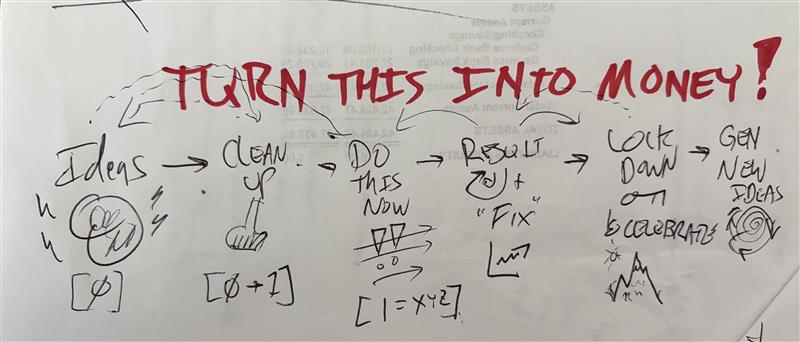 ASSETS
Current Assets
Checking/Savings
Cadence Bank Checking
Cadence Bank Savings
TOTAL ASSETS
TURN THIS INTO MONEY!
Ideas → CLEAN UP → DO THIS NOW → RESULT → LOCK DOWN → GEN NEW IDEAS
+
"FIX"
& CELEBRATE
[∅]
[∅→1]
[1=XYZ]